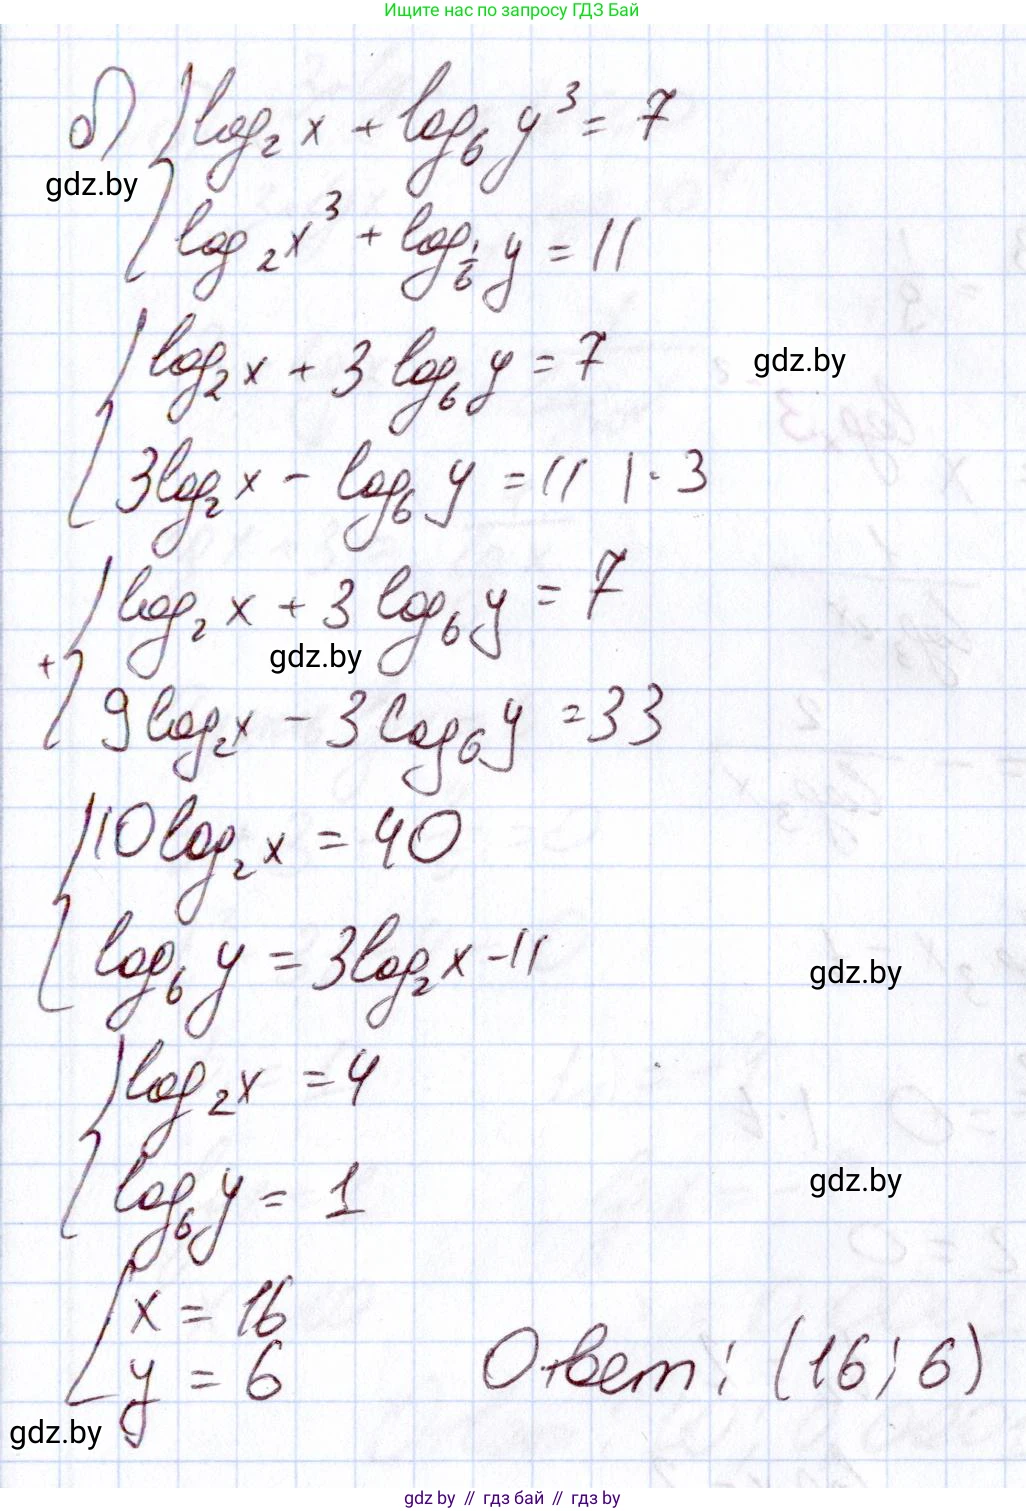 Ищите нас по запросу ГДЗ Бай
б) { log₂ x + log₆ y³ = 7
gdz.by
log₂ x³ + log_{1/6} y = 11
{ log₂ x + 3 log₆ y = 7
gdz.by
3 log₂ x - log₆ y = 11 | · 3
{ log₂ x + 3 log₆ y = 7
+
gdz.by
9 log₂ x - 3 log₆ y = 33
{ 10 log₂ x = 40
log₆ y = 3 log₂ x - 11
gdz.by
{ log₂ x = 4
log₆ y = 1
gdz.by
{ x = 16
y = 6
Ответ: (16; 6)
gdz.by
gdz.by // гдз бай // gdz.by